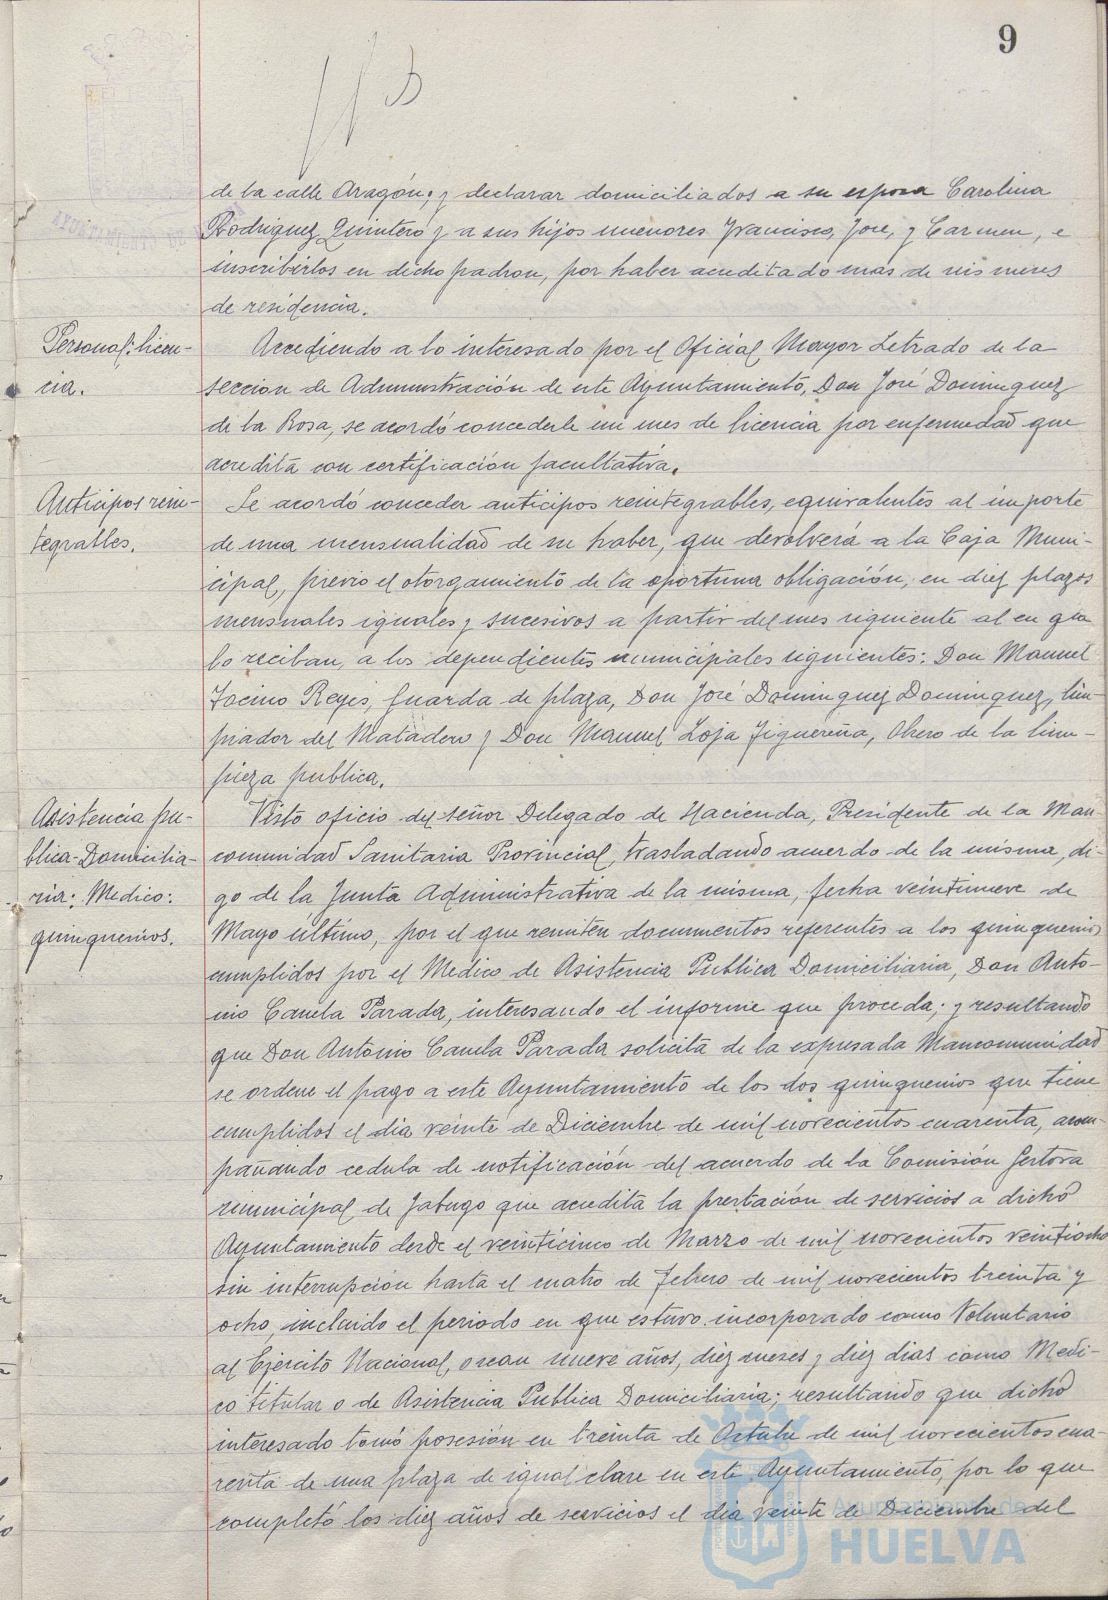 9
de la calle Aragón; y declarar domiciliados a su esposa Carolina
Rodriguez Quintero y a sus hijos menores Francisco, José, y Carmen, e
inscribirlos en dicho padron, por haber acreditado mas de seis meses
de residencia.
Personal: licen-
cia.
Accediendo a lo interesado por el Oficial Mayor Letrado de la
seccion de Administración de este Ayuntamiento, Don José Dominguez
de la Rosa, se acordó concederle un mes de licencia por enfermedad que
acredita con certificación facultativa.
Anticipos rein-
tegrables.
Se acordó conceder anticipos reintegrables, equivalentes al importe
de una mensualidad de su haber, que devolverá a la Caja Muni-
cipal, previo el otorgamiento de la oportuna obligación, en diez plazos
mensuales iguales y sucesivos a partir del mes siguiente al en que
lo reciban, a los dependientes municipales siguientes: Don Manuel
Jacino Reyes, Guarda de plaza, Don José Dominguez Dominguez, lim-
piador del Matadero y Don Manuel Loja Figuereña, Obrero de la lim-
pieza publica.
Asistencia pu-
blica-Domicilia-
ria: Medico:
quinquenios.
Visto oficio del señor Delegado de Hacienda, Presidente de la Man-
comunidad Sanitaria Provincial, trasladando acuerdo de la misma, di-
go de la Junta Administrativa de la misma, fecha veintinueve de
Mayo último, por el que remiten documentos referentes a los quinquenios
cumplidos por el Medico de Asistencia Publica Domiciliaria, Don Anto-
nio Canela Parada, interesando el informe que proceda; y resultando
que Don Antonio Canela Parada solicita de la expresada Mancomunidad
se ordene el pago a este Ayuntamiento de los dos quinquenios que tiene
cumplidos el dia veinte de Diciembre de mil novecientos cuarenta, acom-
pañando cedula de notificación del acuerdo de la Comisión Gestora
municipal de Jabugo que acredita la prestación de servicios a dicho
Ayuntamiento desde el veinticinco de Marzo de mil novecientos veintiocho
sin interrupción hasta el cuatro de Febrero de mil novecientos treinta y
ocho, incluido el periodo en que estuvo incorporado como Voluntario
al Ejército Nacional, o sean nueve años, diez meses y diez dias como Medi-
co titular o de Asistencia Publica Domiciliaria; resultando que dicho
interesado tomó posesión en treinta de Octubre de mil novecientos cua-
renta de una plaza de igual clase en este Ayuntamiento, por lo que
completó los diez años de servicios el dia veinte de Diciembre del
Ayuntamiento de
HUELVA